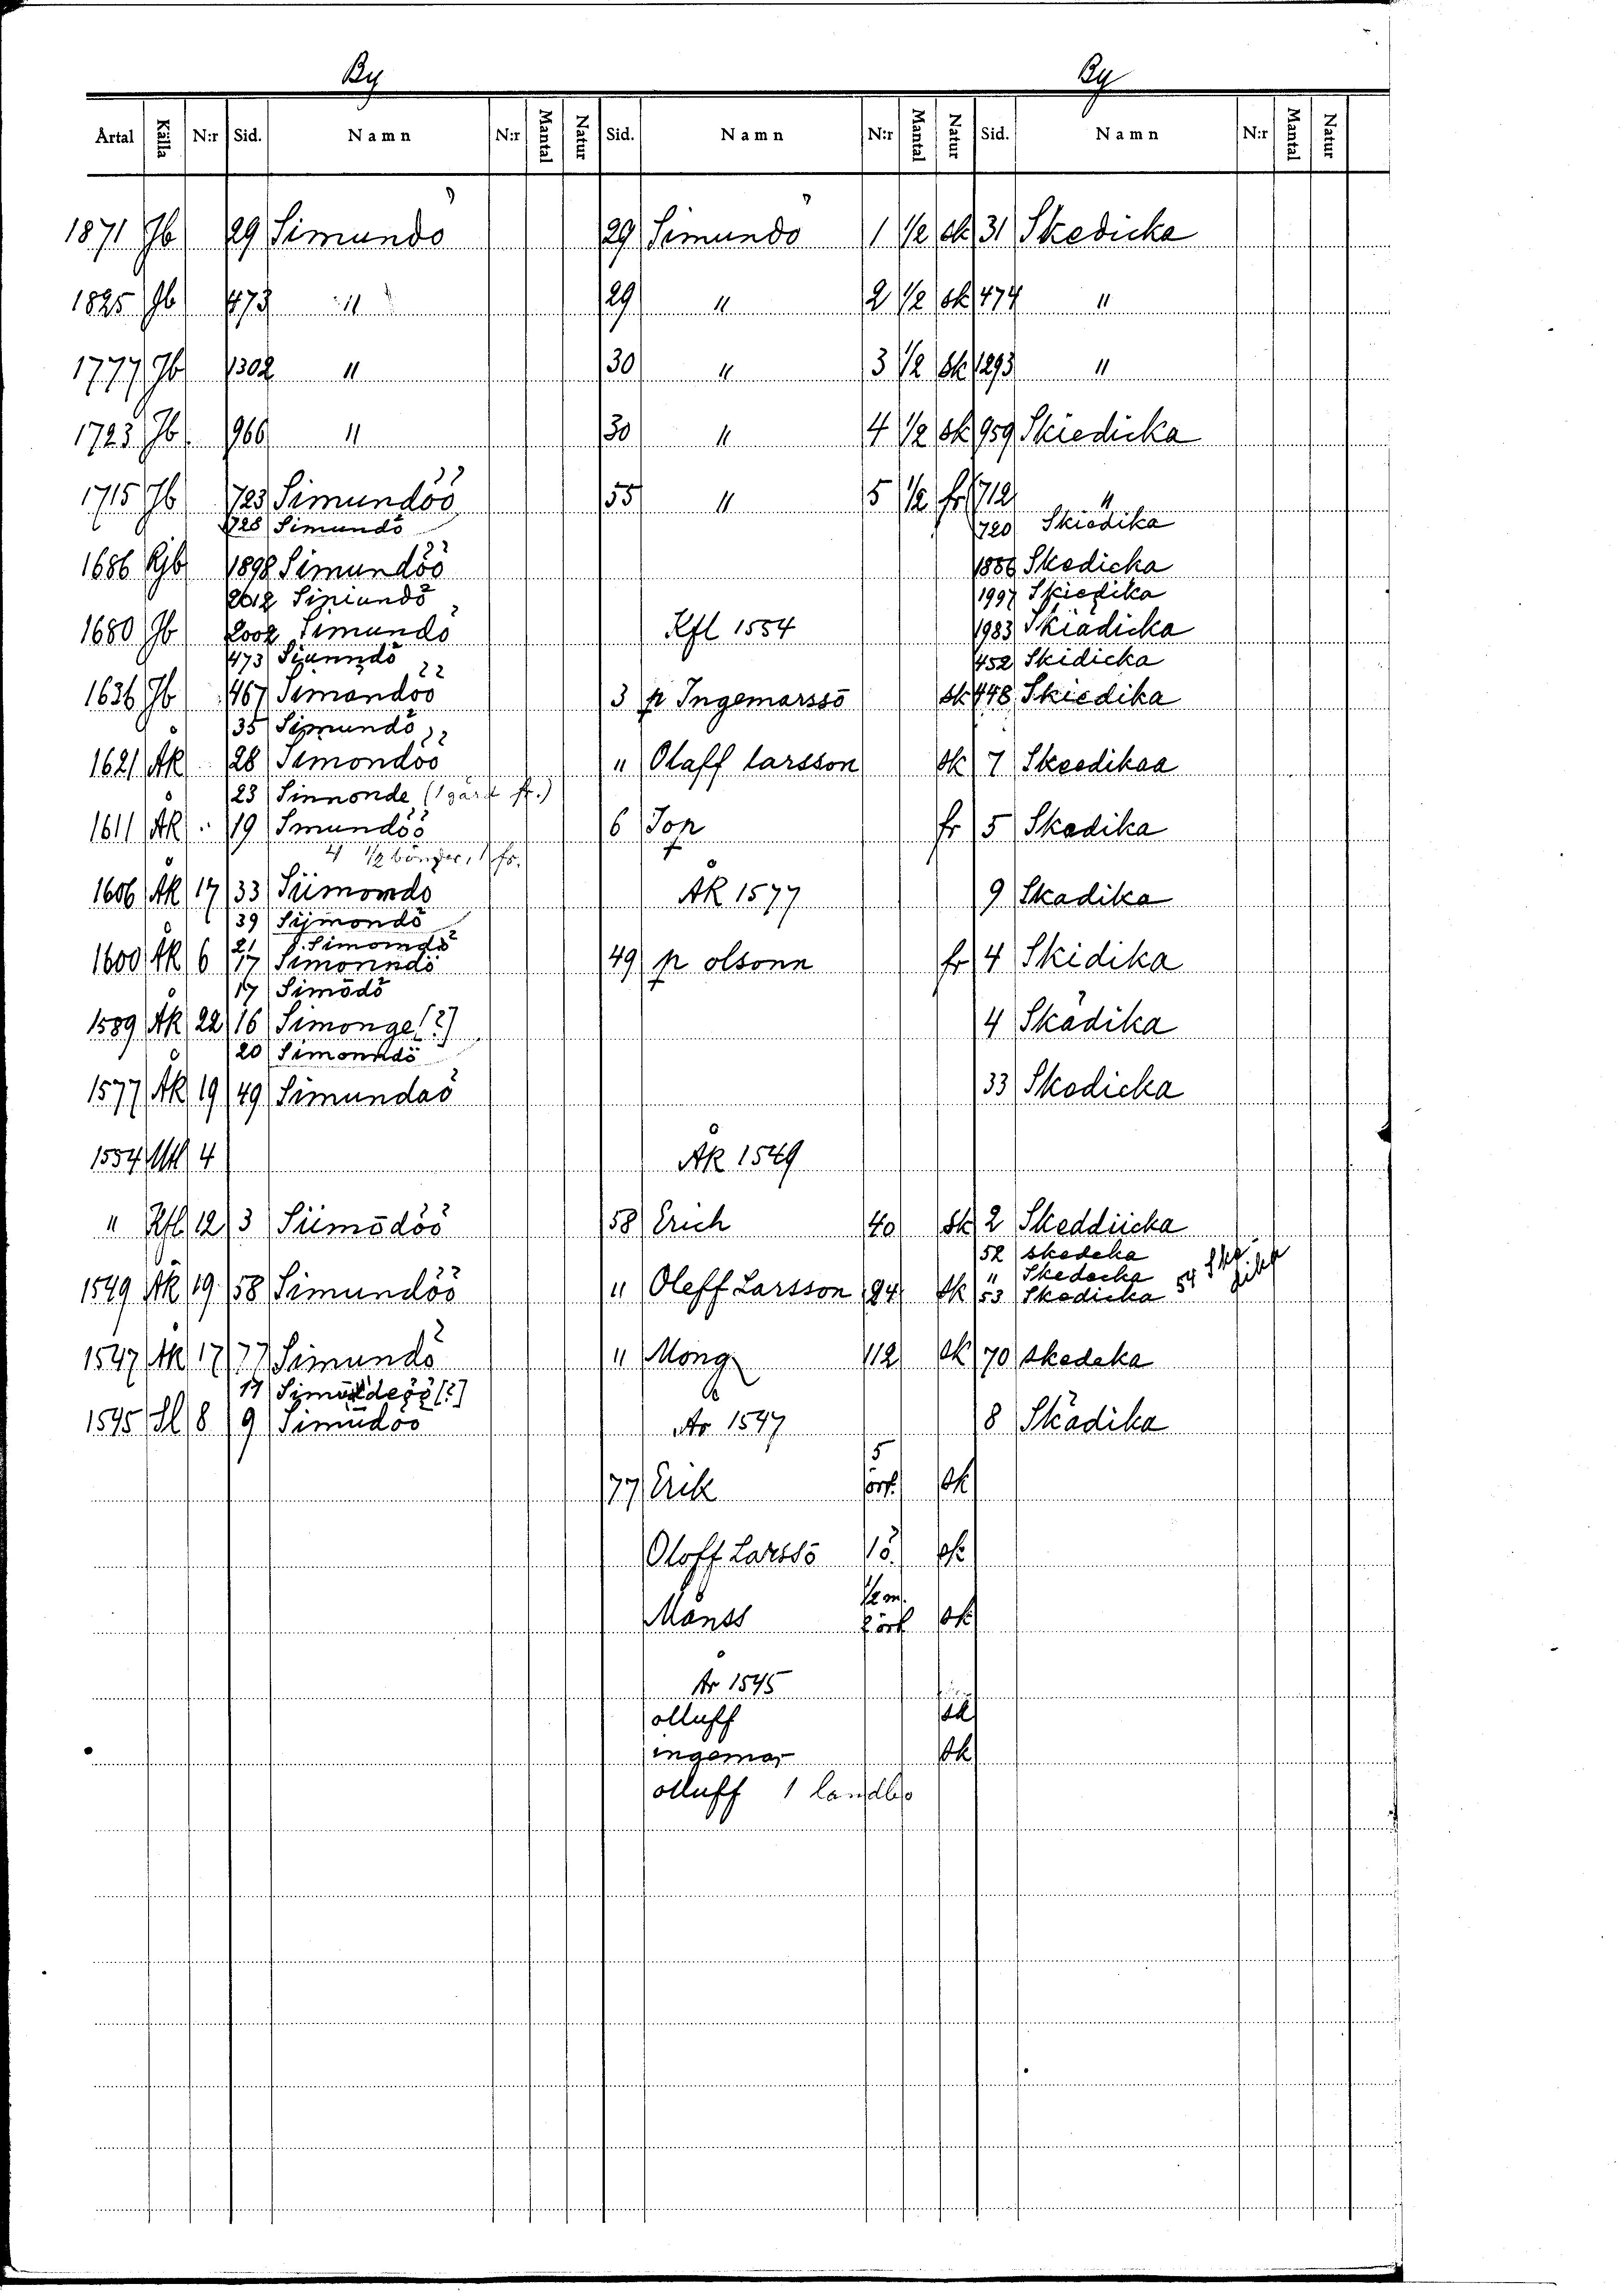 By By
Årtal Källa N:r Sid. Namn N:r Mantal Natur Sid. Namn N:r Mantal Natur Sid. Namn N:r Mantal Natur
1871 Jb 29 Simundö 29 Simundö 1 1/2 sk 31 Skedicka
1825 Jb 473 " 29 " 2 1/2 sk 474 "
1777 Jb 1302 " 30 " 3 1/2 sk 1293 "
1723 Jb 966 " 30 " 4 1/2 sk 959 Skiedicka
1715 Jb 723 Simundöö 55 " 5 1/2 fr 712 "
728 Simundö 720 Skiedika
1686 Rjb 1898 Simundöö 1886 Skedicka
2012 Simundö 1997 Skiedika
1680 Jb 2002 Simundö Kfl 1554 1983 Skiädicka
473 Siunndö 452 Skidicka
1636 Jb 467 Simandöö 3 p Ingemarssō sk 448 Skiedika
35 Simundö
1621 ÅK 28 Simondöö " Olaff larsson sk 7 Skeedikaa
23 Sinnonde (1 gård fr.)
1611 ÅK 19 Smundöö 6 Jop fr 5 Skedika
4 1/2 bönger, 1 fr.
1606 ÅK 17 33 Siimondo ÅK 1577 9 Skadika
39 Sijmondö
21 S. Simomdö
1600 ÅK 6 17 Simonndö 49 p olsonn fr 4 Skidika
17 Simōdö
1589 ÅK 22 16 Simonge [?] 4 Skädika
20 Simonndö
1577 ÅK 19 49 Simundaö 33 Skedicka
1554 Utl 4 ÅK 1549
" Kfl 12 3 Siimōdöö 58 Erich 40 sk 2 Skeddiicka
52 skedeka
" Skedecka 54 Ske
dika
1549 ÅK 19 58 Simundöö " Oleff Larsson 94 sk 53 Skedicka
1547 ÅK 17 77 Simundö " Mong 112 sk 70 skedeka
17 Simundeöö [?]
1545 Sl 8 9 Simūdöö År 1547 8 Skädika
77 Erik 5 örl. sk
Oloff Larssō 1ö. sk
1/2 m.
Månss 2 örl sk
År 1545
olluff sk
ingemar sk
olluff 1 landbo